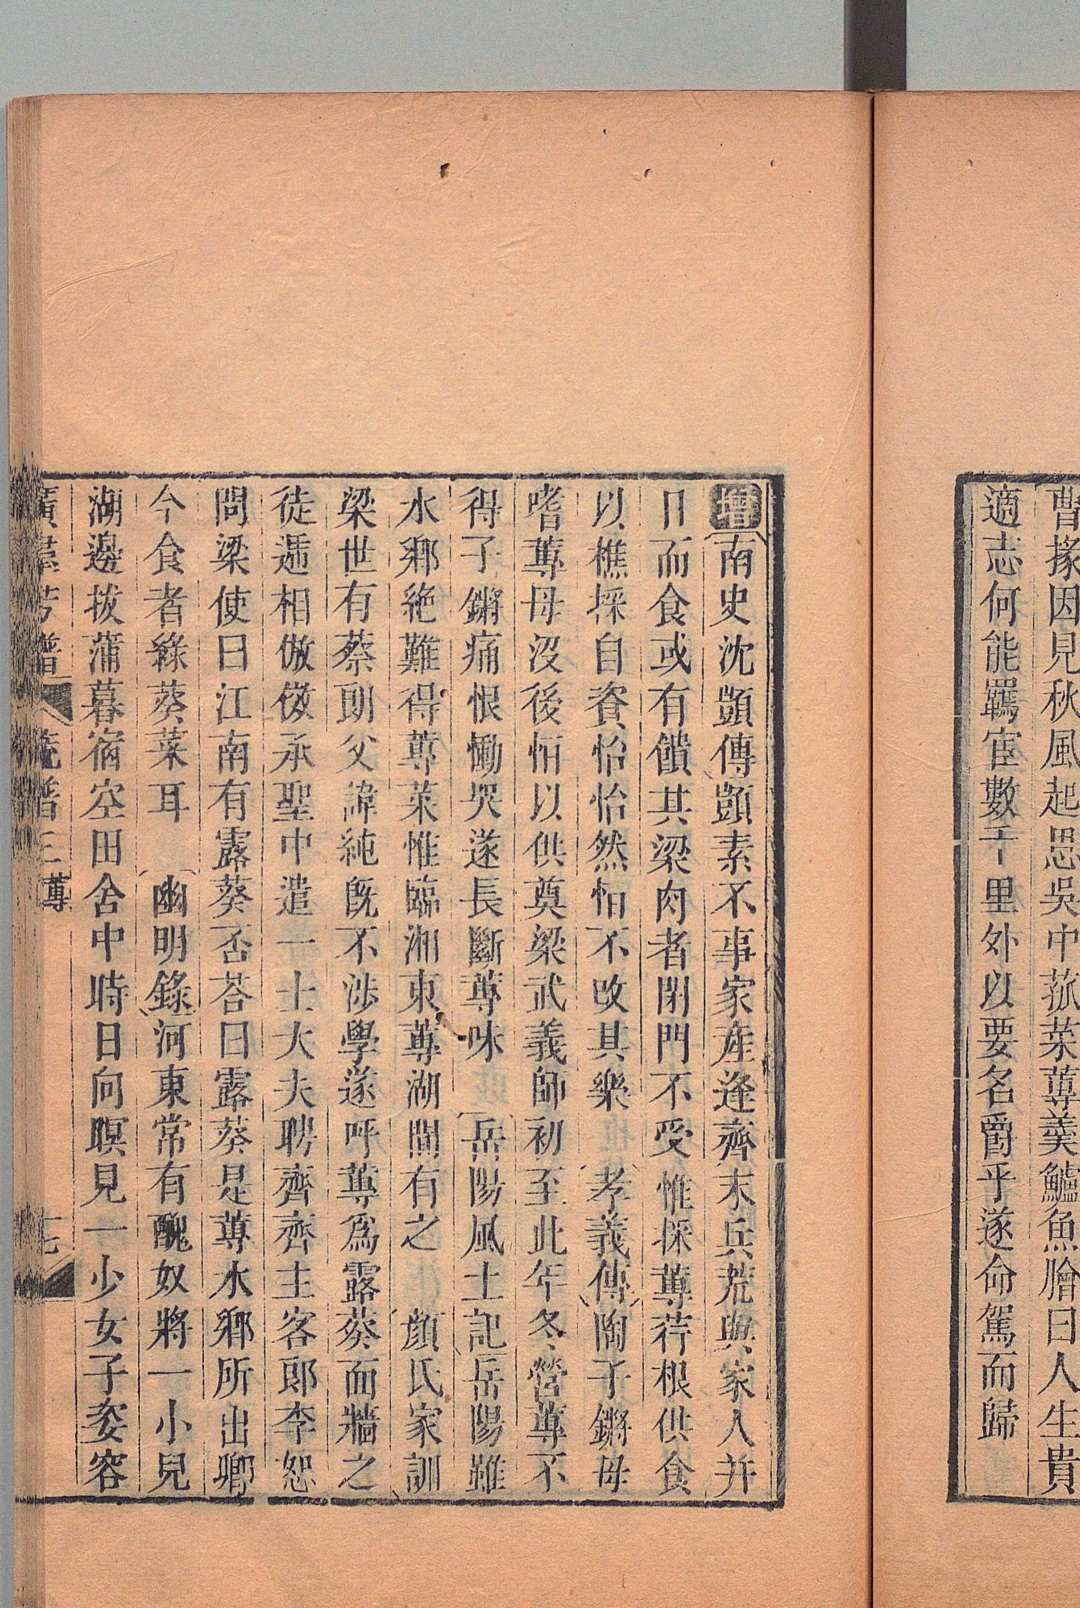 曹掾因見秋風起思吳中菰菜蓴羹鱸魚膾曰人生貴
適志何能羈宦數千里外以要名爵乎遂命駕而歸
增南史沈顗傳顗素不事家産逢齊末兵荒與家人并
日而食或有饋其梁肉者閉門不受惟採蓴荇根供食
以樵採自資怡怡然怕不改其樂　孝義傳陶子鏘母
嗜蓴母沒後怕以供奠梁武義師初至此年冬營蓴不
得子鏘痛恨慟哭遂長斷蓴味　岳陽風土記岳陽雖
水鄉絶難得蓴菜惟臨湘東蓴湖間有之　顔氏家訓
梁世有蔡朗父諱純旣不涉學遂呼蓴爲露葵面牆之
徒遞相倣傚承聖中遣一士大夫聘齊齊主客郎李恕
問梁使曰江南有露葵否荅曰露葵是蓴水鄉所出卿
今食者綠葵菜耳　幽明錄河東常有醜奴將一小兒
湖邊拔蒲暮宿空田舍中時日向暝見一少女子姿容
廣羣芳譜　蔬譜三蓴　十七